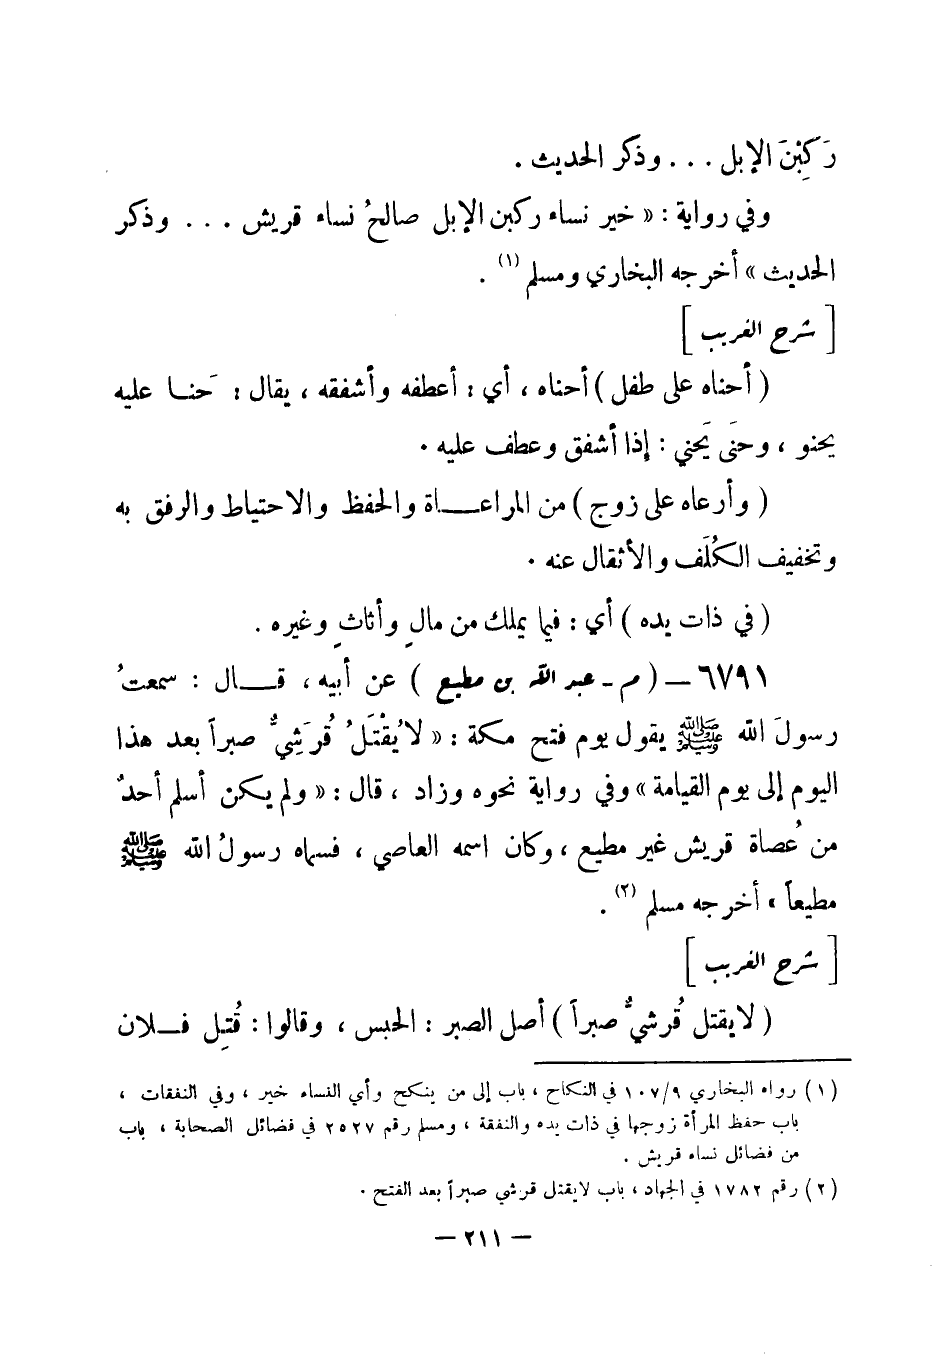 رَكِبْنَ الإبل ... وذكر الحديث .
وفي رواية : « خير نساء ركبن الإبل صالحُ نساء قريش ... وذكر
الحديث » أخرجه البخاري ومسلم (١) .
[ شرح الغريب ]
( أحناه على طفل ) أحناه ، أي : أعطفه وأشفقه ، يقال : حَنا عليه
يحنو ، وحنَى يَحني : إذا أشفق وعطف عليه .
( وأرعاه على زوج ) من المراعاة والحفظ والاحتياط والرفق به
وتخفيف الكُلَف والأثقال عنه .
( في ذات يده ) أي : فيما يملك من مالٍ وأثاثٍ وغيره .
٦٧٩١ – ( م - عبد الله بن مطيع ) عن أبيه ، قال : سمعتُ
رسولَ الله ﷺ يقول يوم فتح مكة : « لا يُقْتَلُ قُرَشِيٌّ صبراً بعد هذا
اليوم إلى يوم القيامة » وفي رواية نحوه وزاد ، قال : « ولم يكن أسلم أحدٌ
من عُصاة قريش غير مطيع ، وكان اسمه العاصي ، فسماه رسولُ الله ﷺ
مطيعاً » أخرجه مسلم (٢) .
[ شرح الغريب ]
( لا يقتل قُرشيٌّ صبراً ) أصل الصبر : الحبس ، وقالوا : قُتِل فلان
(١) رواه البخاري ١٠٧/٩ في النكاح ، باب إلى من ينكح وأي النساء خير ، وفي النفقات ،
باب حفظ المرأة زوجها في ذات يده والنفقة ، ومسلم رقم ٢٥٢٧ في فضائل الصحابة ، باب
من فضائل نساء قريش .
(٢) رقم ١٧٨٢ في الجهاد ، باب لا يقتل قرشي صبراً بعد الفتح .
– ٢١١ –